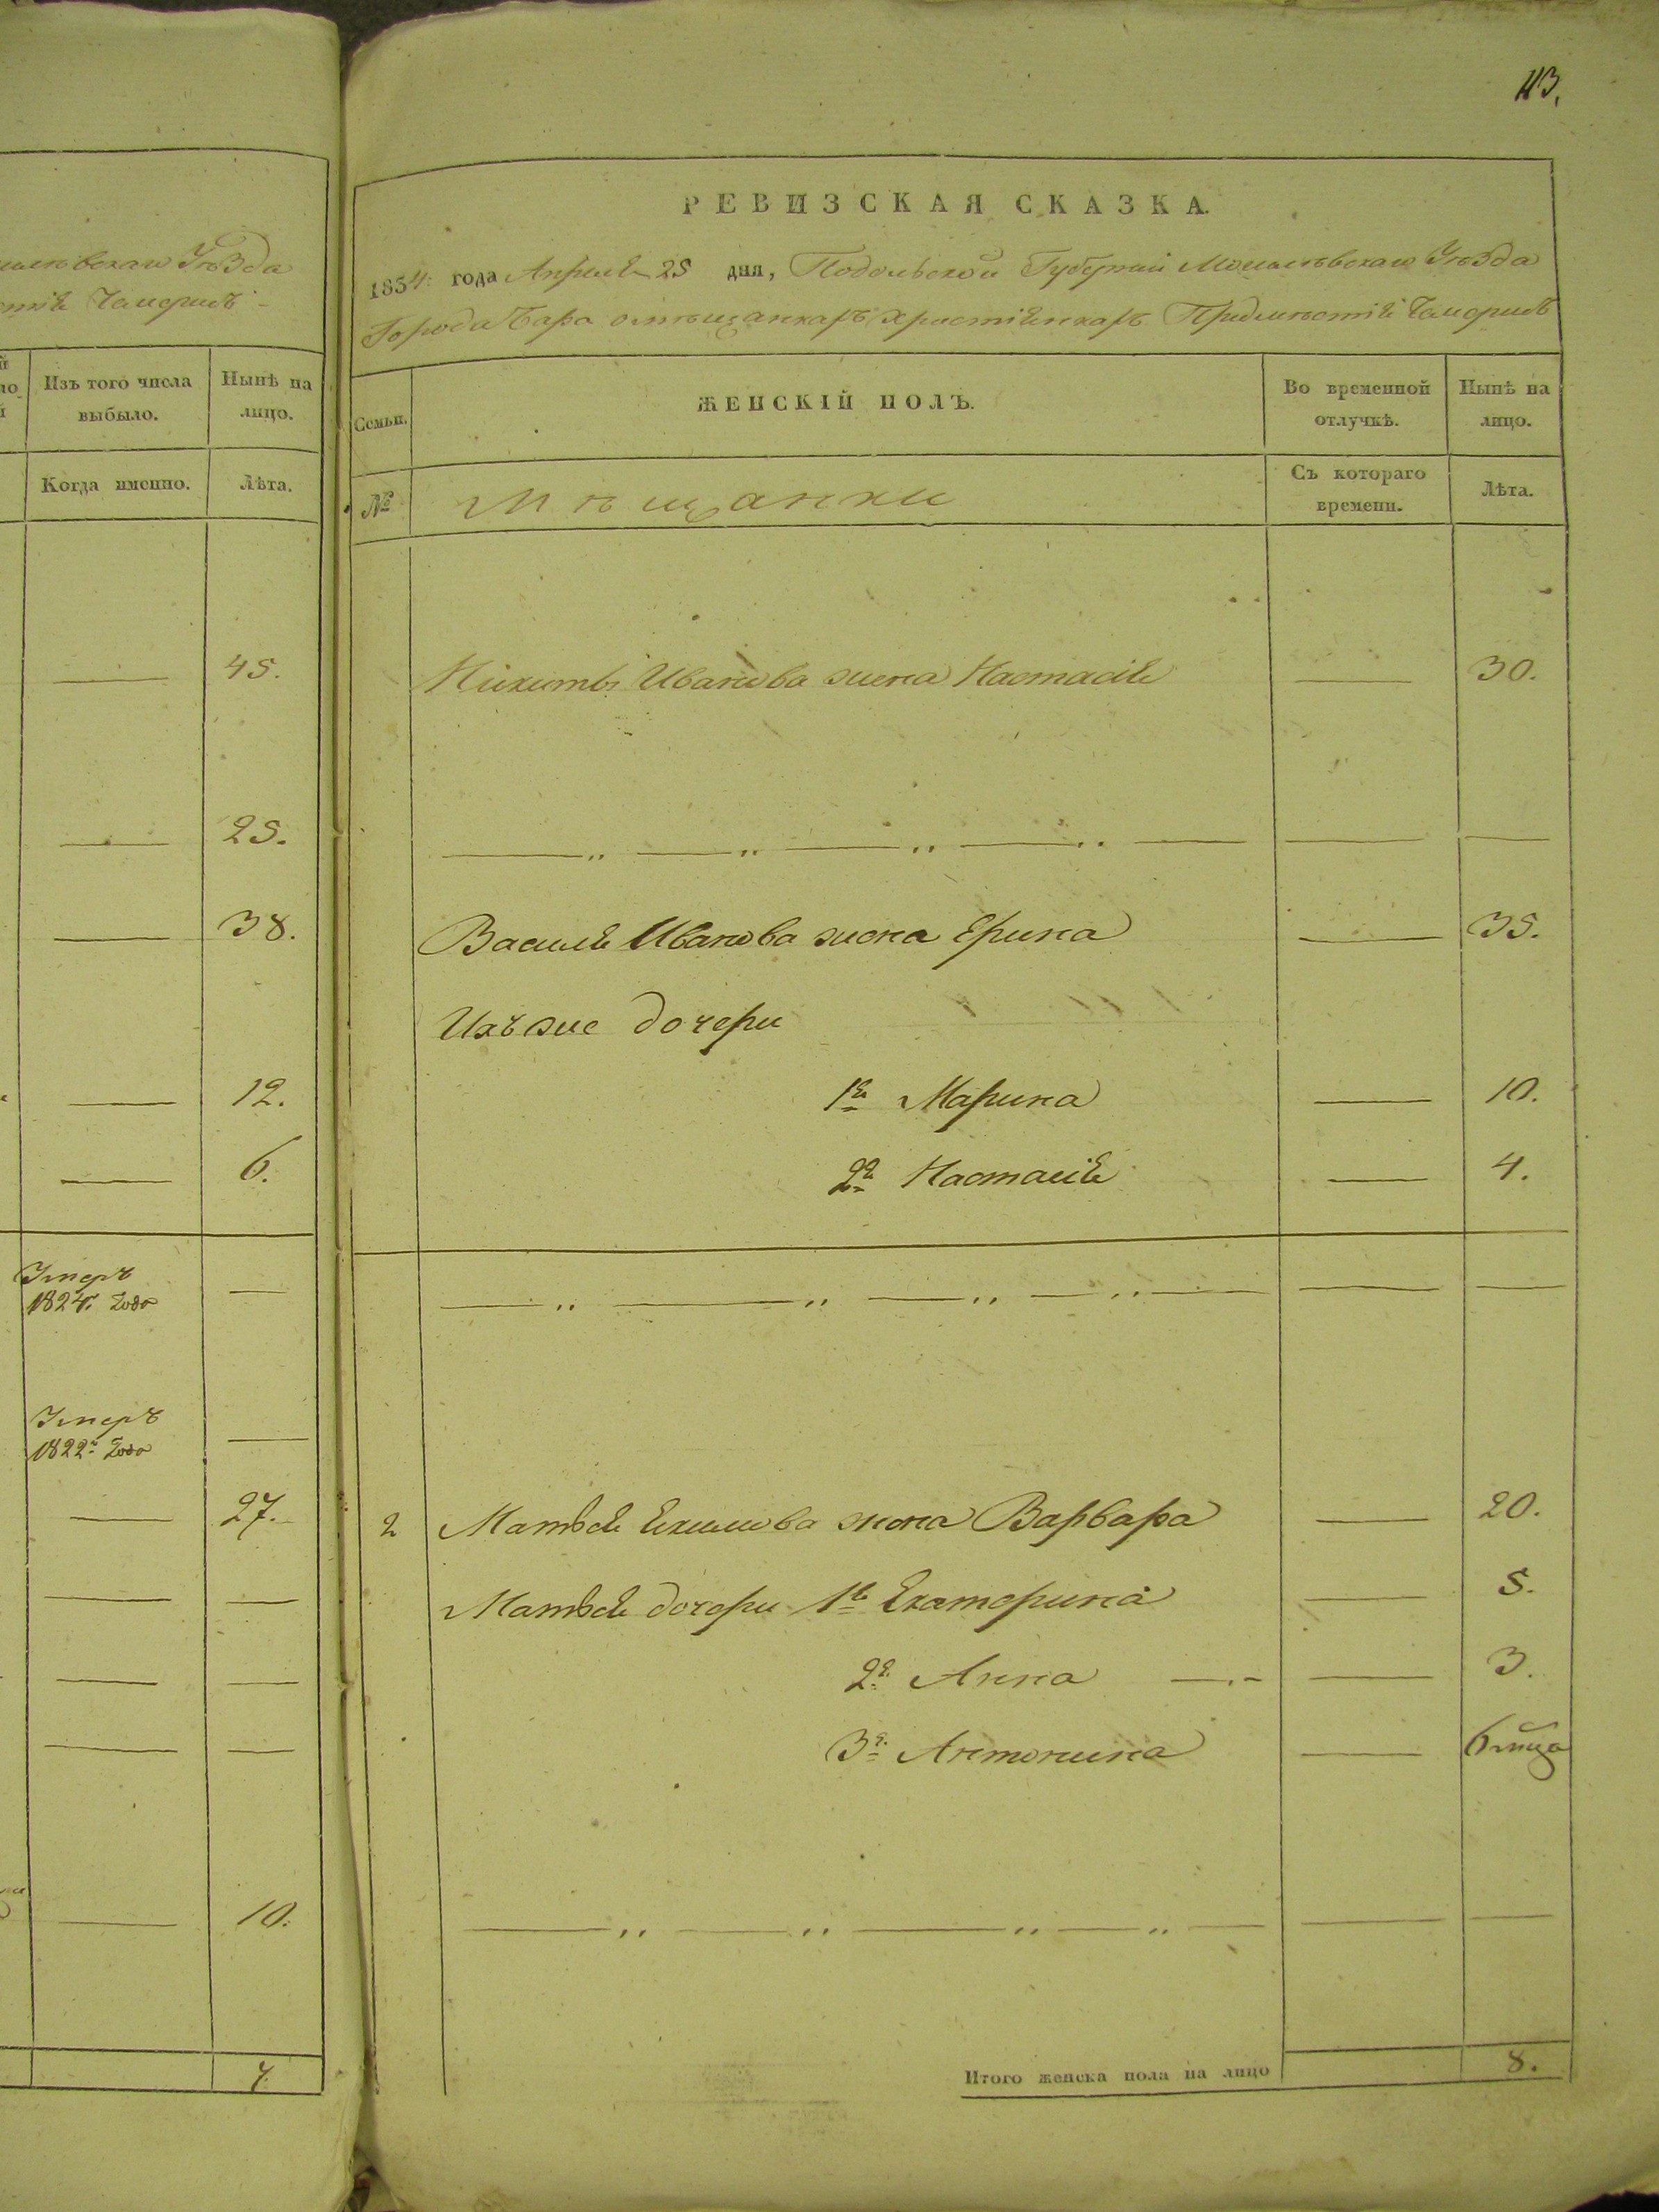 Уѣзда
Чемерисъ
Изъ того числа
выбыло.
Нынѣ на
лицо.
Когда именно.
Лѣта.
45.
25.
38.
12.
6.
Умеръ
1824. года
Умеръ
1822. года
27.
10.
7
113.
РЕВИЗСКАЯ СКАЗКА.
1834: года Апреля 25 дня, Подольской Губерніи Могилевскаго Уѣзда
Города Бара о мѣщанкахъ христіянкахъ Предмѣстія Чемерисъ
Семьи.
ЖЕНСКІЙ ПОЛЪ.
Во временной
отлучкѣ.
Нынѣ на
лицо.
№
Мѣщанки
Съ котораго
времени.
Лѣта.
Никиты Иванова жена Настасія 30.
Василя Иванова жена Ерина 35.
Ихъ же дочери
1я Марина 10.
2я Настасія 4.
2 Матвея Екимова жена Варвара 20.
Матвея дочери 1я Екатерина 5.
2я Анна 3.
3я Антонина 6 мѣца
Итого женска пола на лицо 8.